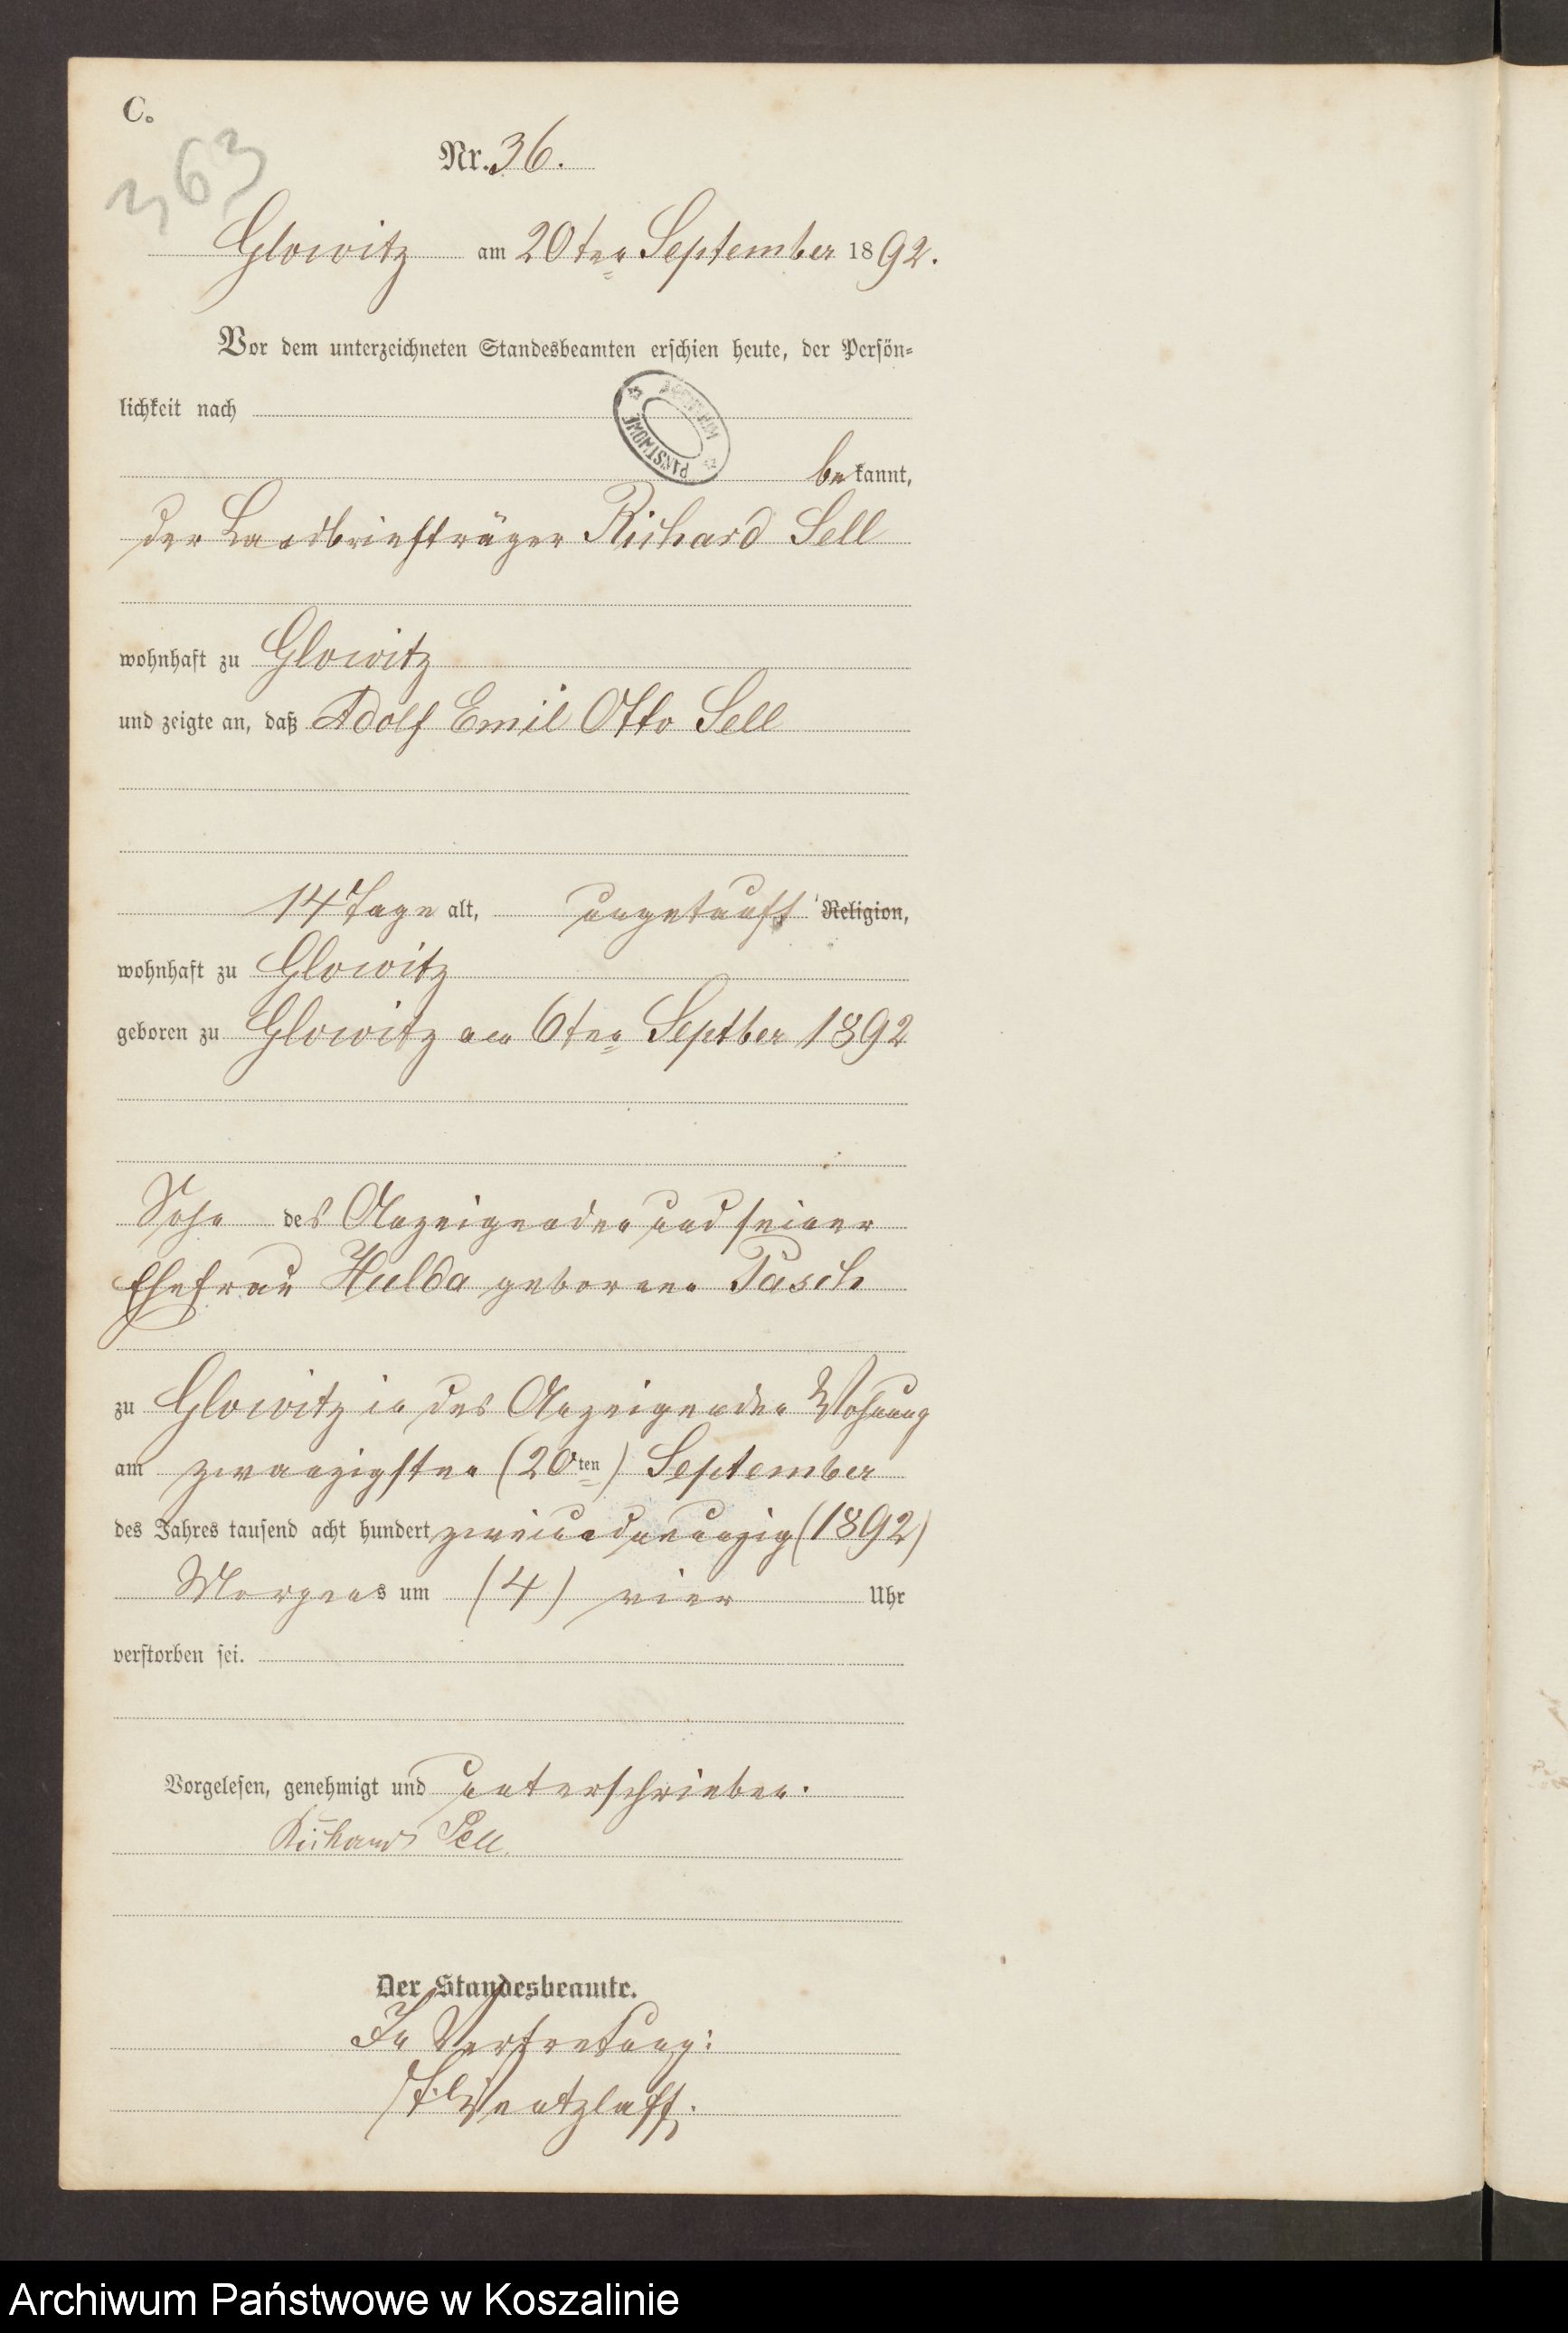 C.
363
Nr. 36.
Glowitz am 20ten September 1892.
Vor dem unterzeichneten Standesbeamten erschien heute, der Persön-
lichkeit nach
ARCHIWUM PAŃSTWOWE
bekannt,
der Landbriefträger Richard Sell
wohnhaft zu Glowitz
und zeigte an, daß Adolf Emil Otto Sell
14 Tage alt, ungetauft Religion,
wohnhaft zu Glowitz
geboren zu Glowitz am 6ten Septber 1892
Sohn des Anzeigenden und seiner
Ehefrau Hulda geborenen Pasch
zu Glowitz in des Anzeigenden Wohnung
am zwanzigsten (20ten) September
des Jahres tausend acht hundert zweiundneunzig (1892)
Morgens um (4) vier Uhr
verstorben sei.
Vorgelesen, genehmigt und unterschrieben.
Richard Sell.
Der Standesbeamte.
In Vertretung:
Wentzlaff.
Archiwum Państwowe w Koszalinie